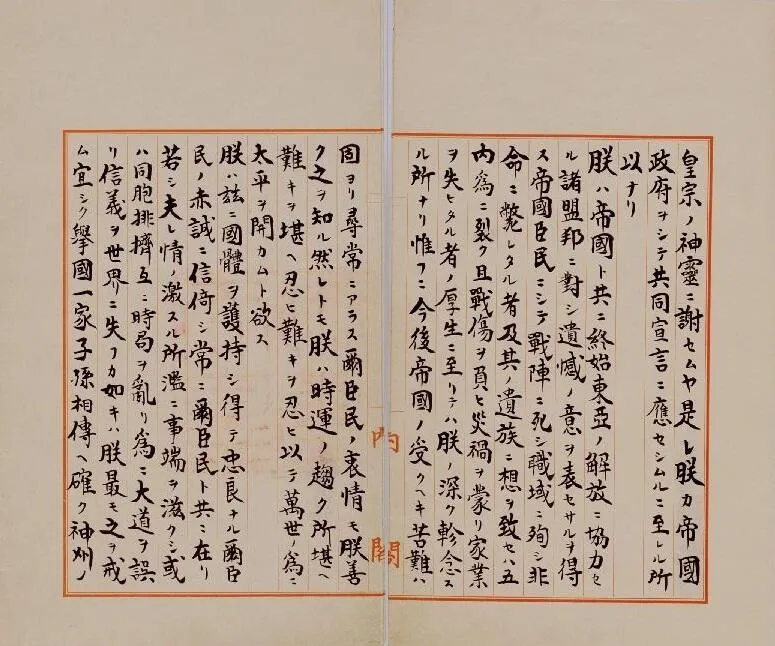 皇宗ノ神靈ニ謝セムヤ是レ朕カ帝國
政府ヲシテ共同宣言ニ應セシムルニ至レル所
以ナリ
朕ハ帝國ト共ニ終始東亞ノ解放ニ協力セ
ル諸盟邦ニ對シ遺憾ノ意ヲ表セサルヲ得
ス帝國臣民ニシテ戰陣ニ死シ職域ニ殉シ非
命ニ斃レタル者及其ノ遺族ニ想ヲ致セハ五
内爲ニ裂ク且戰傷ヲ負ヒ災禍ヲ蒙リ家業
ヲ失ヒタル者ノ厚生ニ至リテハ朕ノ深ク軫念ス
ル所ナリ惟フニ今後帝國ノ受クヘキ苦難ハ
内閣
固ヨリ尋常ニアラス爾臣民ノ衷情モ朕善
ク之ヲ知ル然レトモ朕ハ時運ノ趨ク所堪ヘ
難キヲ堪ヘ忍ヒ難キヲ忍ヒ以テ萬世ノ爲ニ
太平ヲ開カムト欲ス
朕ハ茲ニ國體ヲ護持シ得テ忠良ナル爾臣
民ノ赤誠ニ信倚シ常ニ爾臣民ト共ニ在リ
若シ夫レ情ノ激スル所濫ニ事端ヲ滋クシ或
ハ同胞排擠互ニ時局ヲ亂リ爲ニ大道ヲ誤
リ信義ヲ世界ニ失フカ如キハ朕最モ之ヲ戒
ム宜シク擧國一家子孫相傳ヘ確ク神州ノ